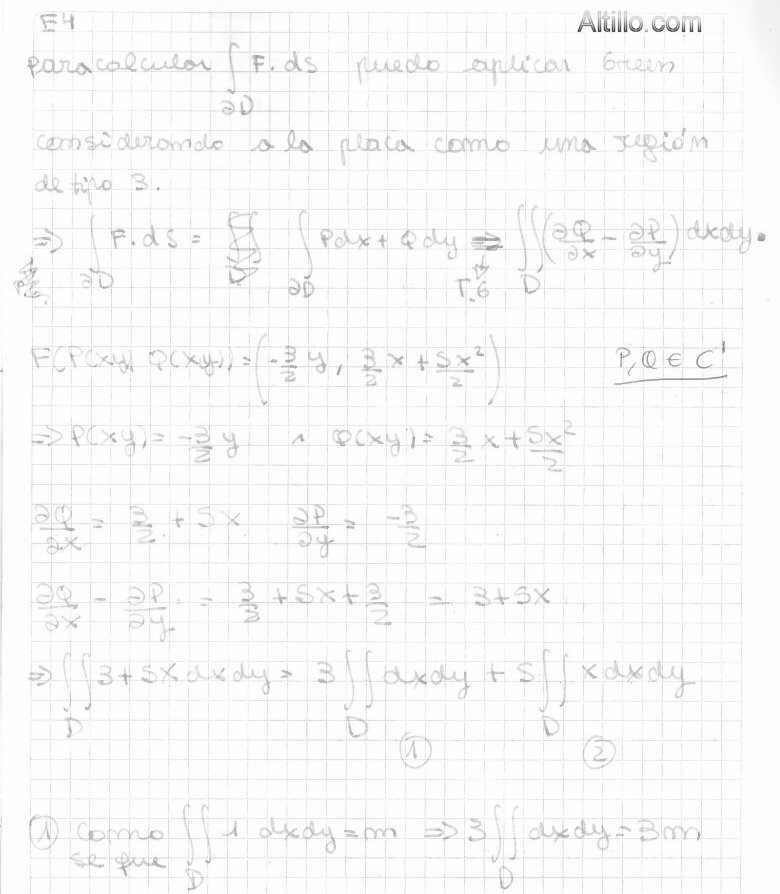 E4
Altillo.com
para calcular ∫_∂D F.ds puedo aplicar Green
considerando a la placa como una región
de tipo 3.
=> ∫_∂D F.ds = ∫_∂D Pdx + Qdy = ∬_D (∂Q/∂x - ∂P/∂y) dxdy.
T.G
F(P(xy), Q(xy)) = (-3/2 y, 3/2 x + 5x²/2) P,Q ∈ C¹
=> P(xy) = -3/2 y ∧ Q(xy) = 3/2 x + 5x²/2
∂Q/∂x = 3/2 + 5x ∂P/∂y = -3/2
∂Q/∂x - ∂P/∂y = 3/2 + 5x + 3/2 = 3+5x
=> ∬_D 3+5x dxdy = 3 ∬_D dxdy + 5 ∬_D x dxdy
① ②
① como se que ∬_D 1 dxdy = m => 3 ∬_D dxdy = 3m